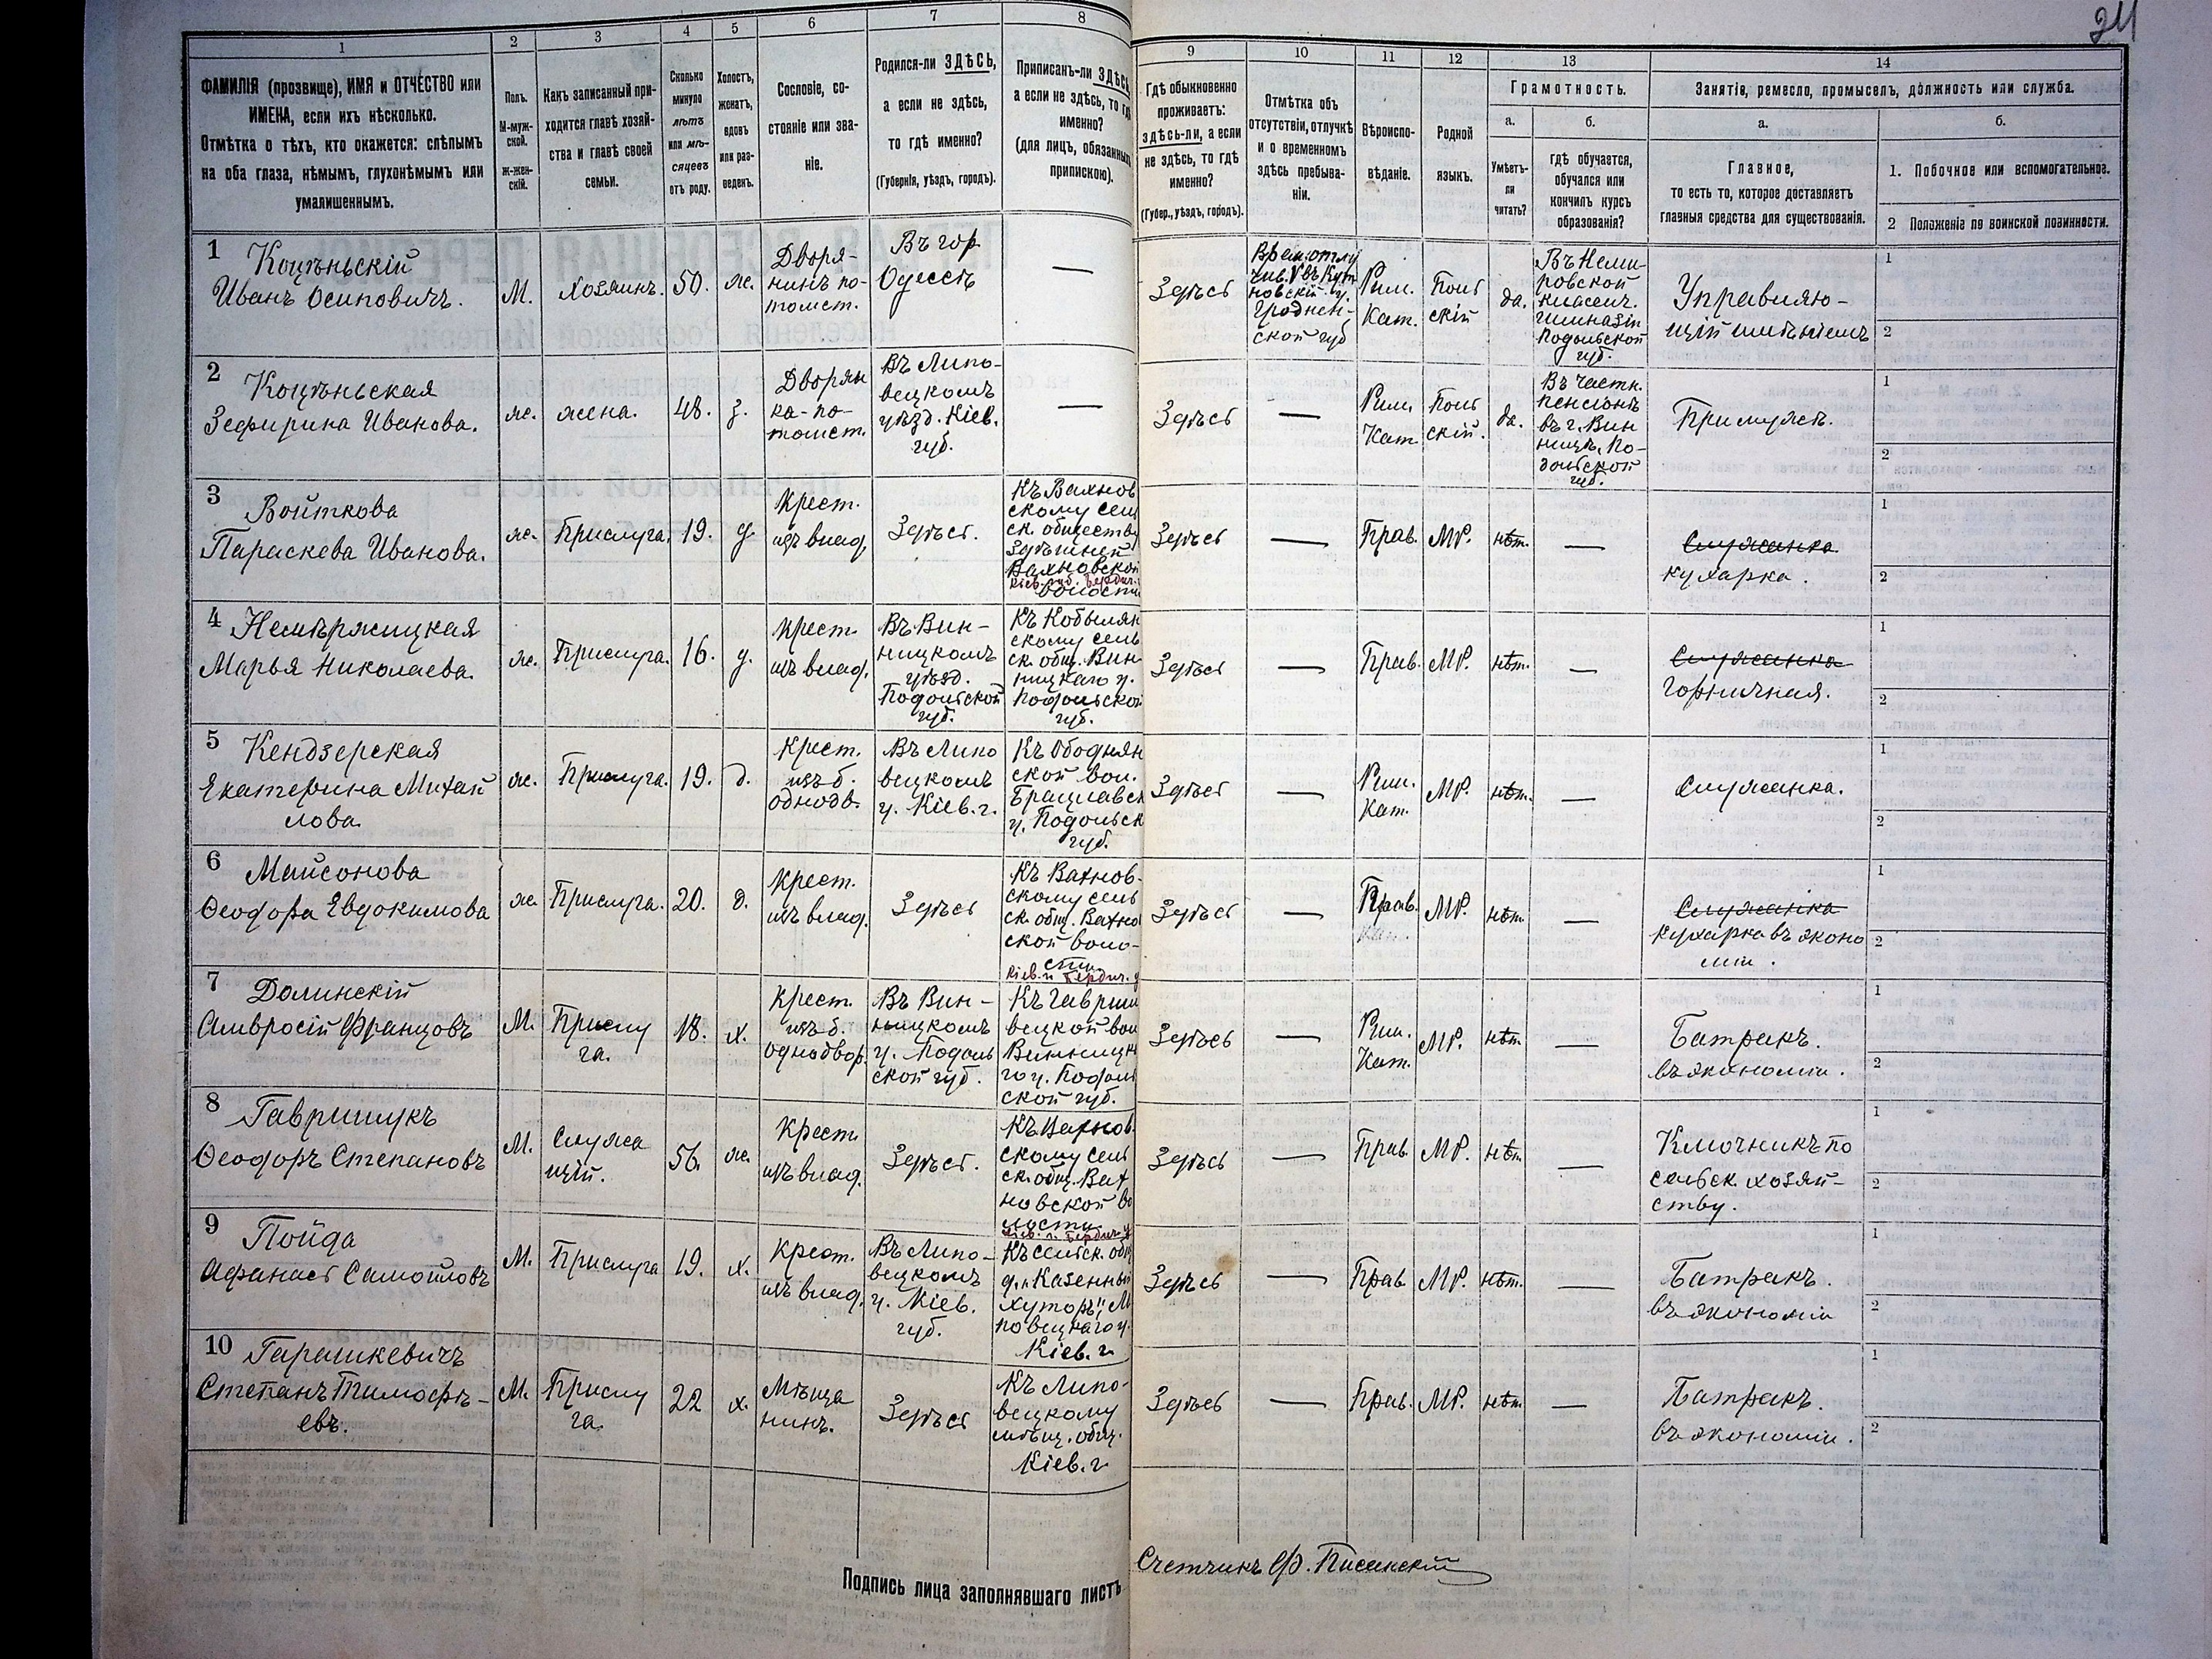 24
1
2
3
4
5
6
7
8
9
10
11
12
13
14
ФАМИЛІЯ (прозвище), ИМЯ и ОТЧЕСТВО или
ИМЕНА, если ихъ нѣсколько.
Отмѣтка о тѣхъ, кто окажется: слѣпымъ
на оба глаза, нѣмымъ, глухонѣмымъ или
умалишеннымъ.
Полъ.
М-муж-
ской.
ж-жен-
скій.
Какъ записанный при-
ходится главѣ хозяй-
ства и главѣ своей
семьи.
Сколько
минуло
лѣтъ
или мѣ-
сяцевъ
отъ роду.
Холостъ,
женатъ,
вдовъ
или раз-
веденъ.
Сословіе, со-
стояніе или зва-
ніе.
Родился-ли ЗДѢСЬ,
а если не здѣсь,
то гдѣ именно?
(Губернія, уѣздъ, городъ).
Приписанъ-ли ЗДѢСЬ,
а если не здѣсь, то гдѣ
именно?
(для лицъ, обязанныхъ
припискою).
Гдѣ обыкновенно
проживаетъ:
здѣсь-ли, а если
не здѣсь, то гдѣ
именно?
(Губер., уѣздъ, городъ).
Отмѣтка объ
отсутствіи, отлучкѣ
и о временномъ
здѣсь пребыва-
ніи.
Вѣроиспо-
вѣданіе.
Родной
языкъ.
Грамотность.
а.
Умѣетъ-
ли
читать?
б.
гдѣ обучается,
обучался или
кончилъ курсъ
образованія?
Занятіе, ремесло, промыселъ, должность или служба.
а.
Главное,
то есть то, которое доставляетъ
главныя средства для существованія.
б.
1. Побочное или вспомогательное.
2 Положеніе по воинской повинности.
1
Коцѣньскій
Иванъ Осиповичъ.
М.
Хозяинъ.
50.
ж.
Дворя-
нинъ по-
томст.
Въ гор
Одессѣ
—
Здѣсь
Грoднен-
ской губ
Рим.
Кат.
Поль
скій
да.
Въ Неми-
ровской
классич.
гимназіи
Подольской
губ.
Управляю-
щій имѣніемъ
1
2
2
Коцѣньская
Зефирина Иванова.
ж.
жена.
48.
з.
Дворян
ка по-
томст.
Въ Липо-
вецкомъ
уѣзд. Кіев.
губ.
—
Здѣсь
—
Рим.
Кат
Поль
скій.
да.
Въ частн.
пенсіонѣ
въ г. Вин
ницѣ, По-
дольской
губ.
При мужѣ.
1
2
3
Войткова
Параскева Иванова.
ж.
Прислуга.
19.
д.
Крест.
изъ влад.
Здѣсь.
Къ Вахнов
скому сель
ск. обществу
Здѣшней
Вахновской
Кіев. губ. Бердич.
волости
Здѣсь
—
Прав.
МР.
нѣт.
—
Служанка
кухарка.
1
2
4
Немѣржицкая
Марья Николаева.
ж.
Прислуга.
16.
д.
Крест.
изъ влад.
Въ Вин-
ницкомъ
уѣзд.
Подольской
губ.
Къ Кобылян
скому сель
ск. общ. Вин
ницкаго у.
Подольской
губ.
Здѣсь
—
Прав.
МР.
нѣт.
—
Служанка
Горничная.
1
2
5
Кендзерская
Екатерина Михай
лова.
ж.
Прислуга.
19.
д.
Крест.
изъ б.
однодв.
Въ Липо
вецкомъ
у. Кіев. г.
Къ Ободнян
ской вол.
Брацлавск
у. Подольск
губ.
Здѣсь
—
Рим.
Кат.
МР.
нѣт.
—
Служанка.
1
2
6
Майсонова
Ѳеодора Евдокимова
ж
Прислуга.
20.
д.
Крест.
изъ влад.
Здѣсь
Къ Вахнов-
скому сель
ск. общ. Вахно
ской воло-
сти.
Кіев. г. Бердич. у
Здѣсь
—
Прав.
МР.
нѣт.
—
Служанка
кухарка въ эконо
міи.
1
2
7
Долинскій
Амвросій Францовъ
М.
Прислу
га.
18.
х.
Крест.
изъ б.
однодвор.
Въ Вин-
ницкомъ
у. Подоль
ской губ.
Къ Гаври
вецкой вол
Винницк
го у. Подоль
ской губ.
Здѣсь
—
Рим.
Кат.
МР.
нѣт
—
Батракъ.
въ экономіи.
1
2
8
Гаврищукъ
Ѳеодоръ Степановъ
М.
Служа
щій.
56.
ж.
Крест
изъ влад.
Здѣсь.
Къ Вахнов
скому сель
ск. общ. Вах
новской во
лости
Кіев. г. Бердич. у
Здѣсь
—
Прав.
МР.
нѣт.
—
Ключникъ по
сельск. хозяй-
ству.
1
2
9
Пойда
Афанасъ Самойловъ
М.
Прислуга
19.
х.
Крест.
изъ влад.
Въ Липо-
вецкомъ
у. Кіев.
губ.
Къ сельск. общ
д. „Казенный
хуторъ“, Ли
повецкаго у.
Кіев. г.
Здѣсь
—
Прав.
МР.
нѣт.
—
Батракъ.
въ экономіи
1
2
10
Гарашкевичъ
Степанъ Тимофѣ-
евъ.
М.
Прислу
га.
22
х.
Мѣща
нинъ.
Здѣсь
Къ Липо-
вецкому
мѣщ. общ.
Кіев. г.
Здѣсь
—
Прав.
МР.
нѣт.
—
Батракъ.
въ экономіи.
1
2
Подпись лица заполнявшаго листъ
Счетчикъ Ф. Писанскій